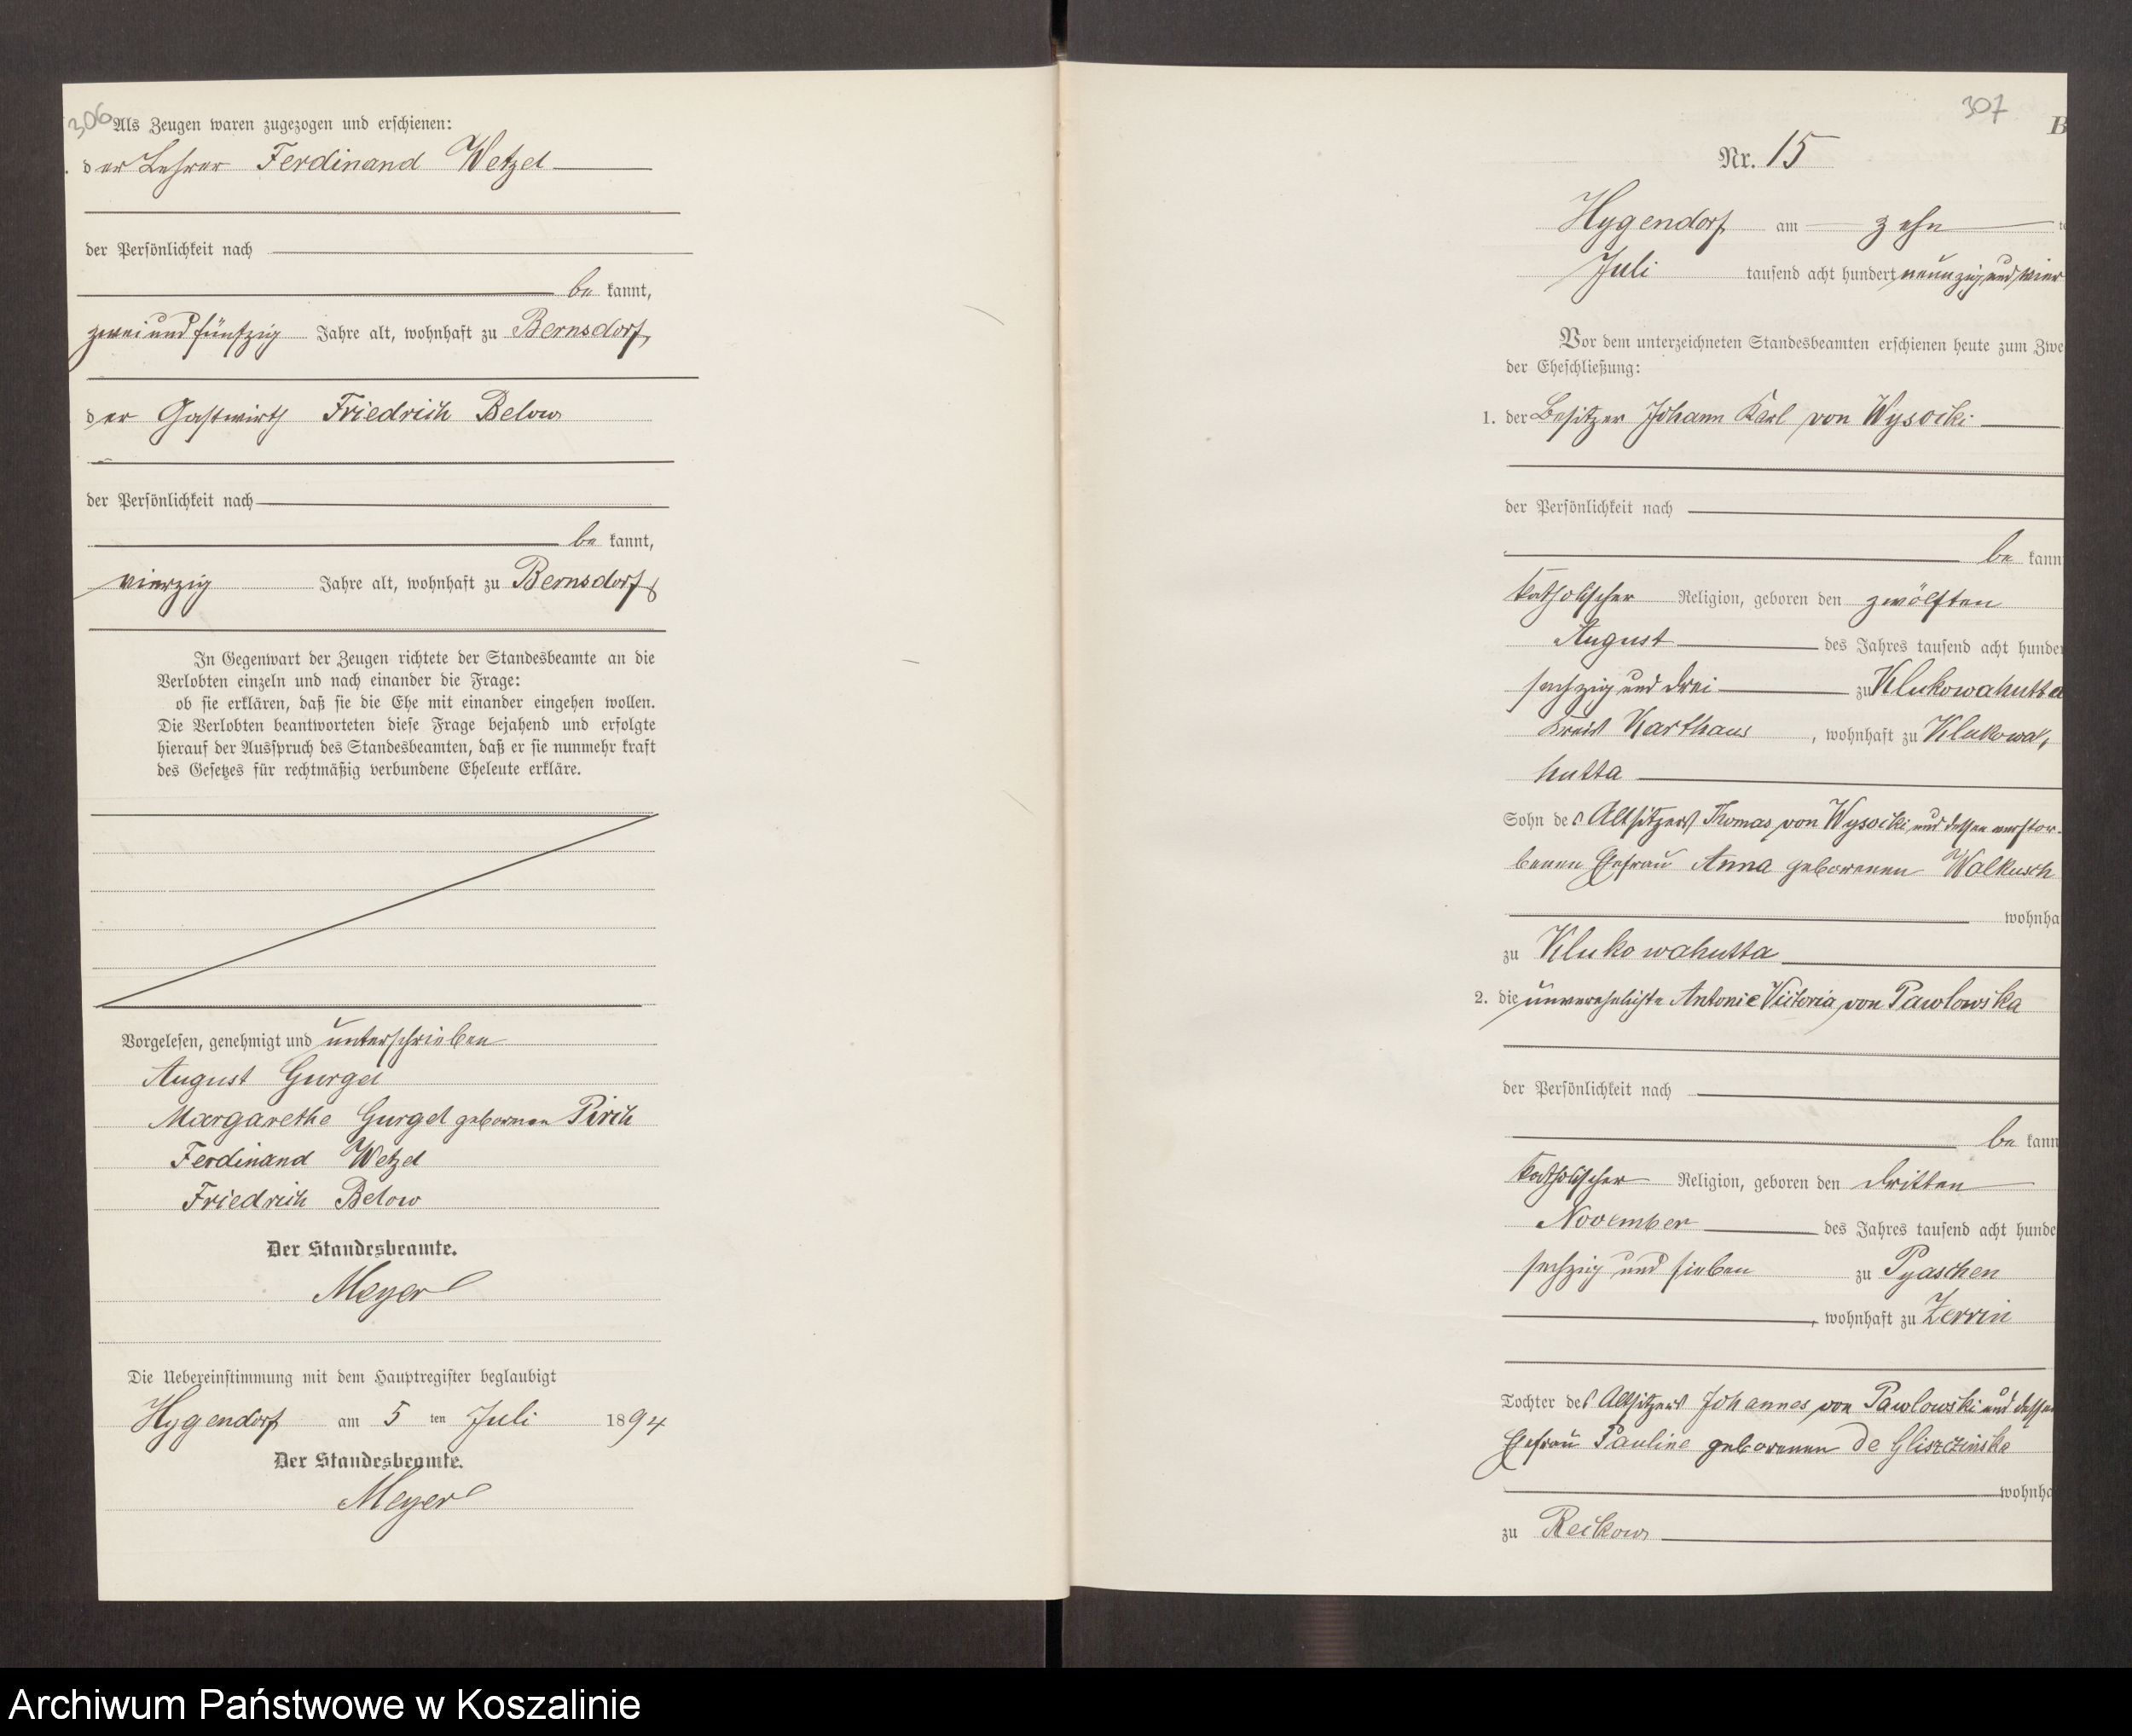 306
Als Zeugen waren zugezogen und erschienen:
der Lehrer Ferdinand Wetzel
der Persönlichkeit nach
be kannt,
zweiundfünfzig Jahre alt, wohnhaft zu Bernsdorf,
der Gastwirth Friedrich Below
der Persönlichkeit nach
be kannt,
vierzig Jahre alt, wohnhaft zu Bernsdorf
In Gegenwart der Zeugen richtete der Standesbeamte an die
Verlobten einzeln und nach einander die Frage:
ob sie erklären, daß sie die Ehe mit einander eingehen wollen.
Die Verlobten beantworteten diese Frage bejahend und erfolgte
hierauf der Ausspruch des Standesbeamten, daß er sie nunmehr kraft
des Gesetzes für rechtmäßig verbundene Eheleute erkläre.
Vorgelesen, genehmigt und unterschrieben
August Gurgel
Margarethe Gurgel geborene Pirch
Ferdinand Wetzel
Friedrich Below
Der Standesbeamte.
Meyer
Die Uebereinstimmung mit dem Hauptregister beglaubigt
Hygendorf am 5 ten Juli 1894
Der Standesbeamte.
Meyer
307
B
Nr. 15
Hygendorf am zehn te
Juli tausend acht hundert neunzig und vier
Vor dem unterzeichneten Standesbeamten erschienen heute zum Zwe
der Eheschließung:
1. der Besitzer Johann Karl von Wysocki
der Persönlichkeit nach
be kann
katholischer Religion, geboren den zwölften
August des Jahres tausend acht hunder
sechzig und drei zu Klukowahutta
Kreis Karthaus, wohnhaft zu Klukowa,
hutta
Sohn des Altsitzers Thomas von Wysocki und dessen verstor-
benen Ehefrau Anna geborenen Walkusch
wohnha
zu Klukowahutta
2. die unverehelichte Antonie Victoria von Pawlowska
der Persönlichkeit nach
be kann
katholischer Religion, geboren den dritten
November des Jahres tausend acht hunde
sechzig und sieben zu Pyaschen
, wohnhaft zu Zerrin
Tochter des Altsitzers Johannes von Pawlowski und dessen
Ehefrau Pauline geborenen de Gliszczinska
wohnha
zu Reckow
Archiwum Państwowe w Koszalinie